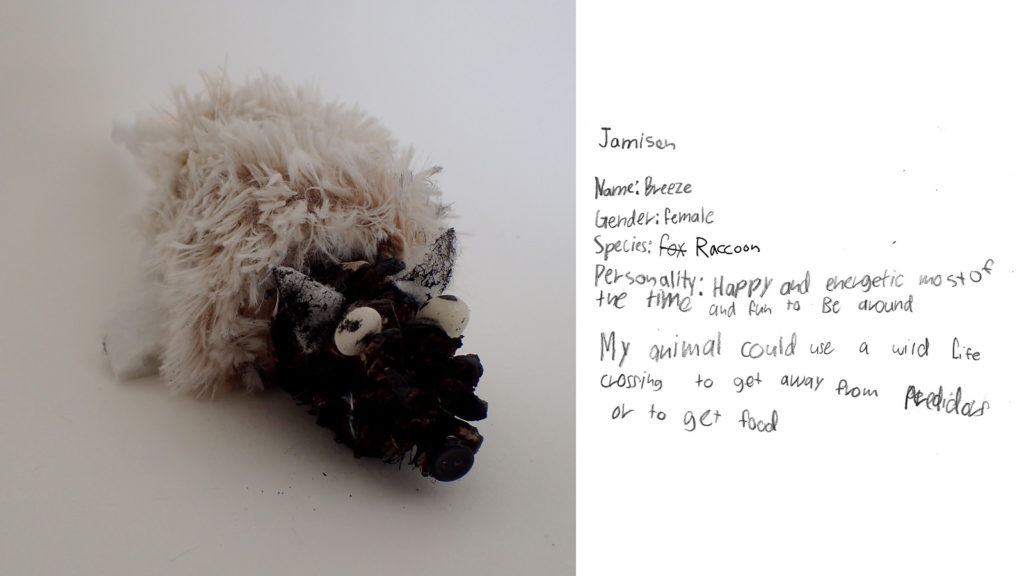 Jamison
Name: Breeze
Gender: female
Species: fox Raccoon
Personality: Happy and energetic most of
the time and fun to Be around
My animal could use a wild life
crossing to get away from Predidors
or to get food